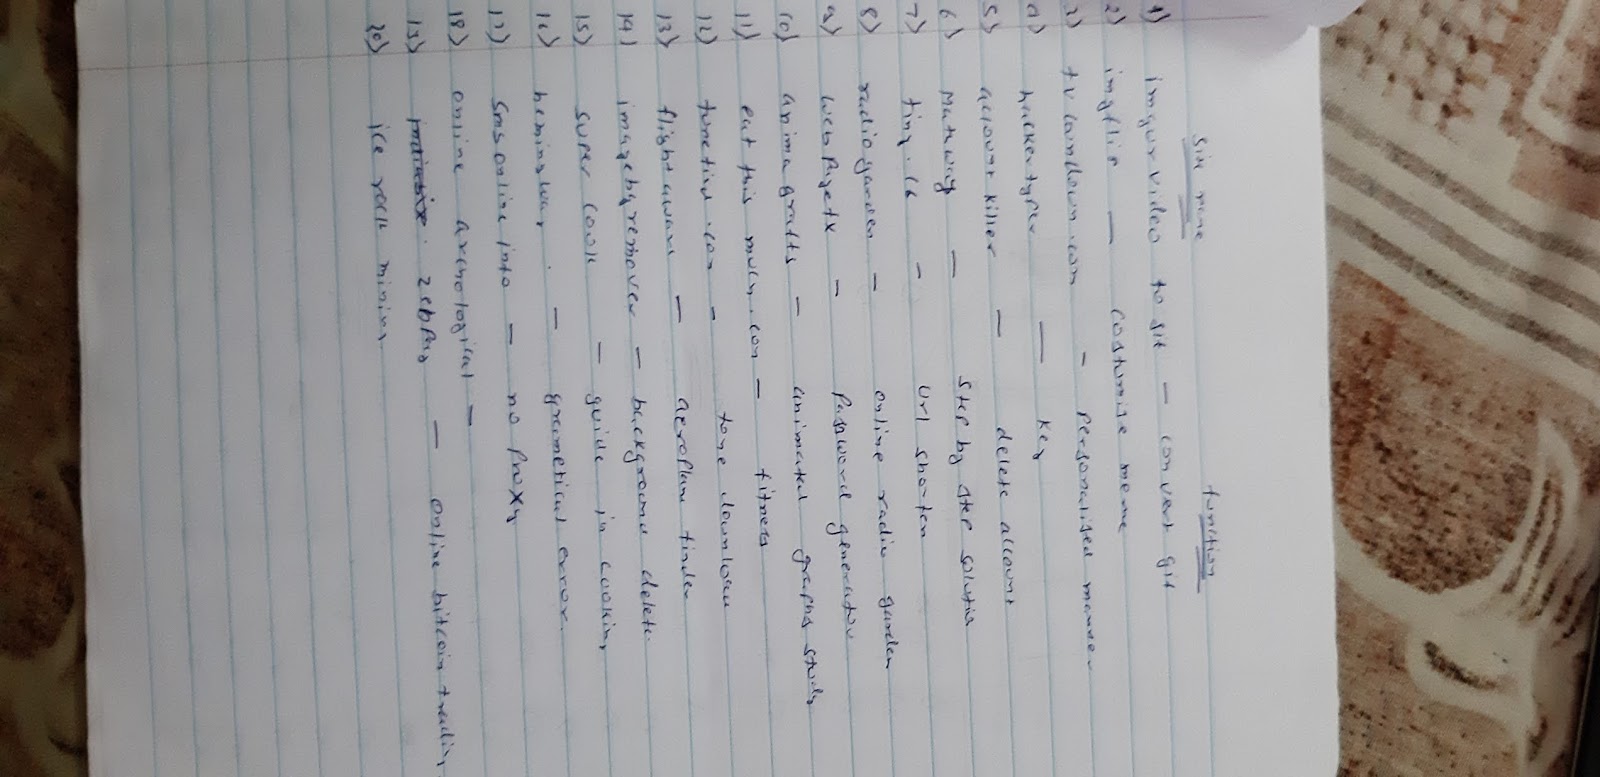 site name function
1) imgurvideo to gif - convert gif
2) imgflip - costumise meme
3) tv calmdown.com - personalised manner
4) hackertyper - key
5) account killer - delete account
6) Mathway - step by step solution
7) tiny.cc - url shorten
8) radiogarden - online radio garden
9) webpagefx - password generator
10) animagraffs - animated graphs study
11) eat this much.com - fitness
12) tunefind.com - tone download
13) flightaware - aeroplane finder
14) imagebgremover - background delete
15) super cook - guide in cooking
16) hemingway. - gramatical error.
17) smsonline info - no proxy
18) online
19) zebpay - online bitcoin trading
20) ice rock mining